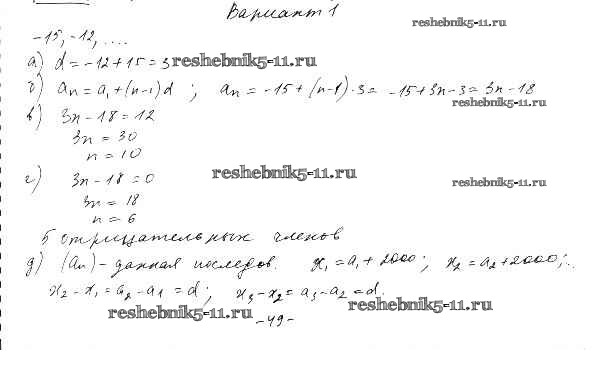 Вариант 1
reshebnik5-11.ru
-15, -12, ....
а) d = -12 + 15 = 3
reshebnik5-11.ru
б) aₙ = a₁ + (n-1)d ; aₙ = -15 + (n-1)·3 = -15 + 3n - 3 = 3n - 18
reshebnik5-11.ru
в) 3n - 18 = 12
3n = 30
n = 10
reshebnik5-11.ru
г) 3n - 18 = 0
reshebnik5-11.ru
3n = 18
n = 6
5 отрицательных членов
д) (aₙ) - данная последов. x₁ = a₁ + 2000; x₂ = a₂ + 2000;..
x₂ - x₁ = a₂ - a₁ = d; x₃ - x₂ = a₃ - a₂ = d.
reshebnik5-11.ru
reshebnik5-11.ru
-49-